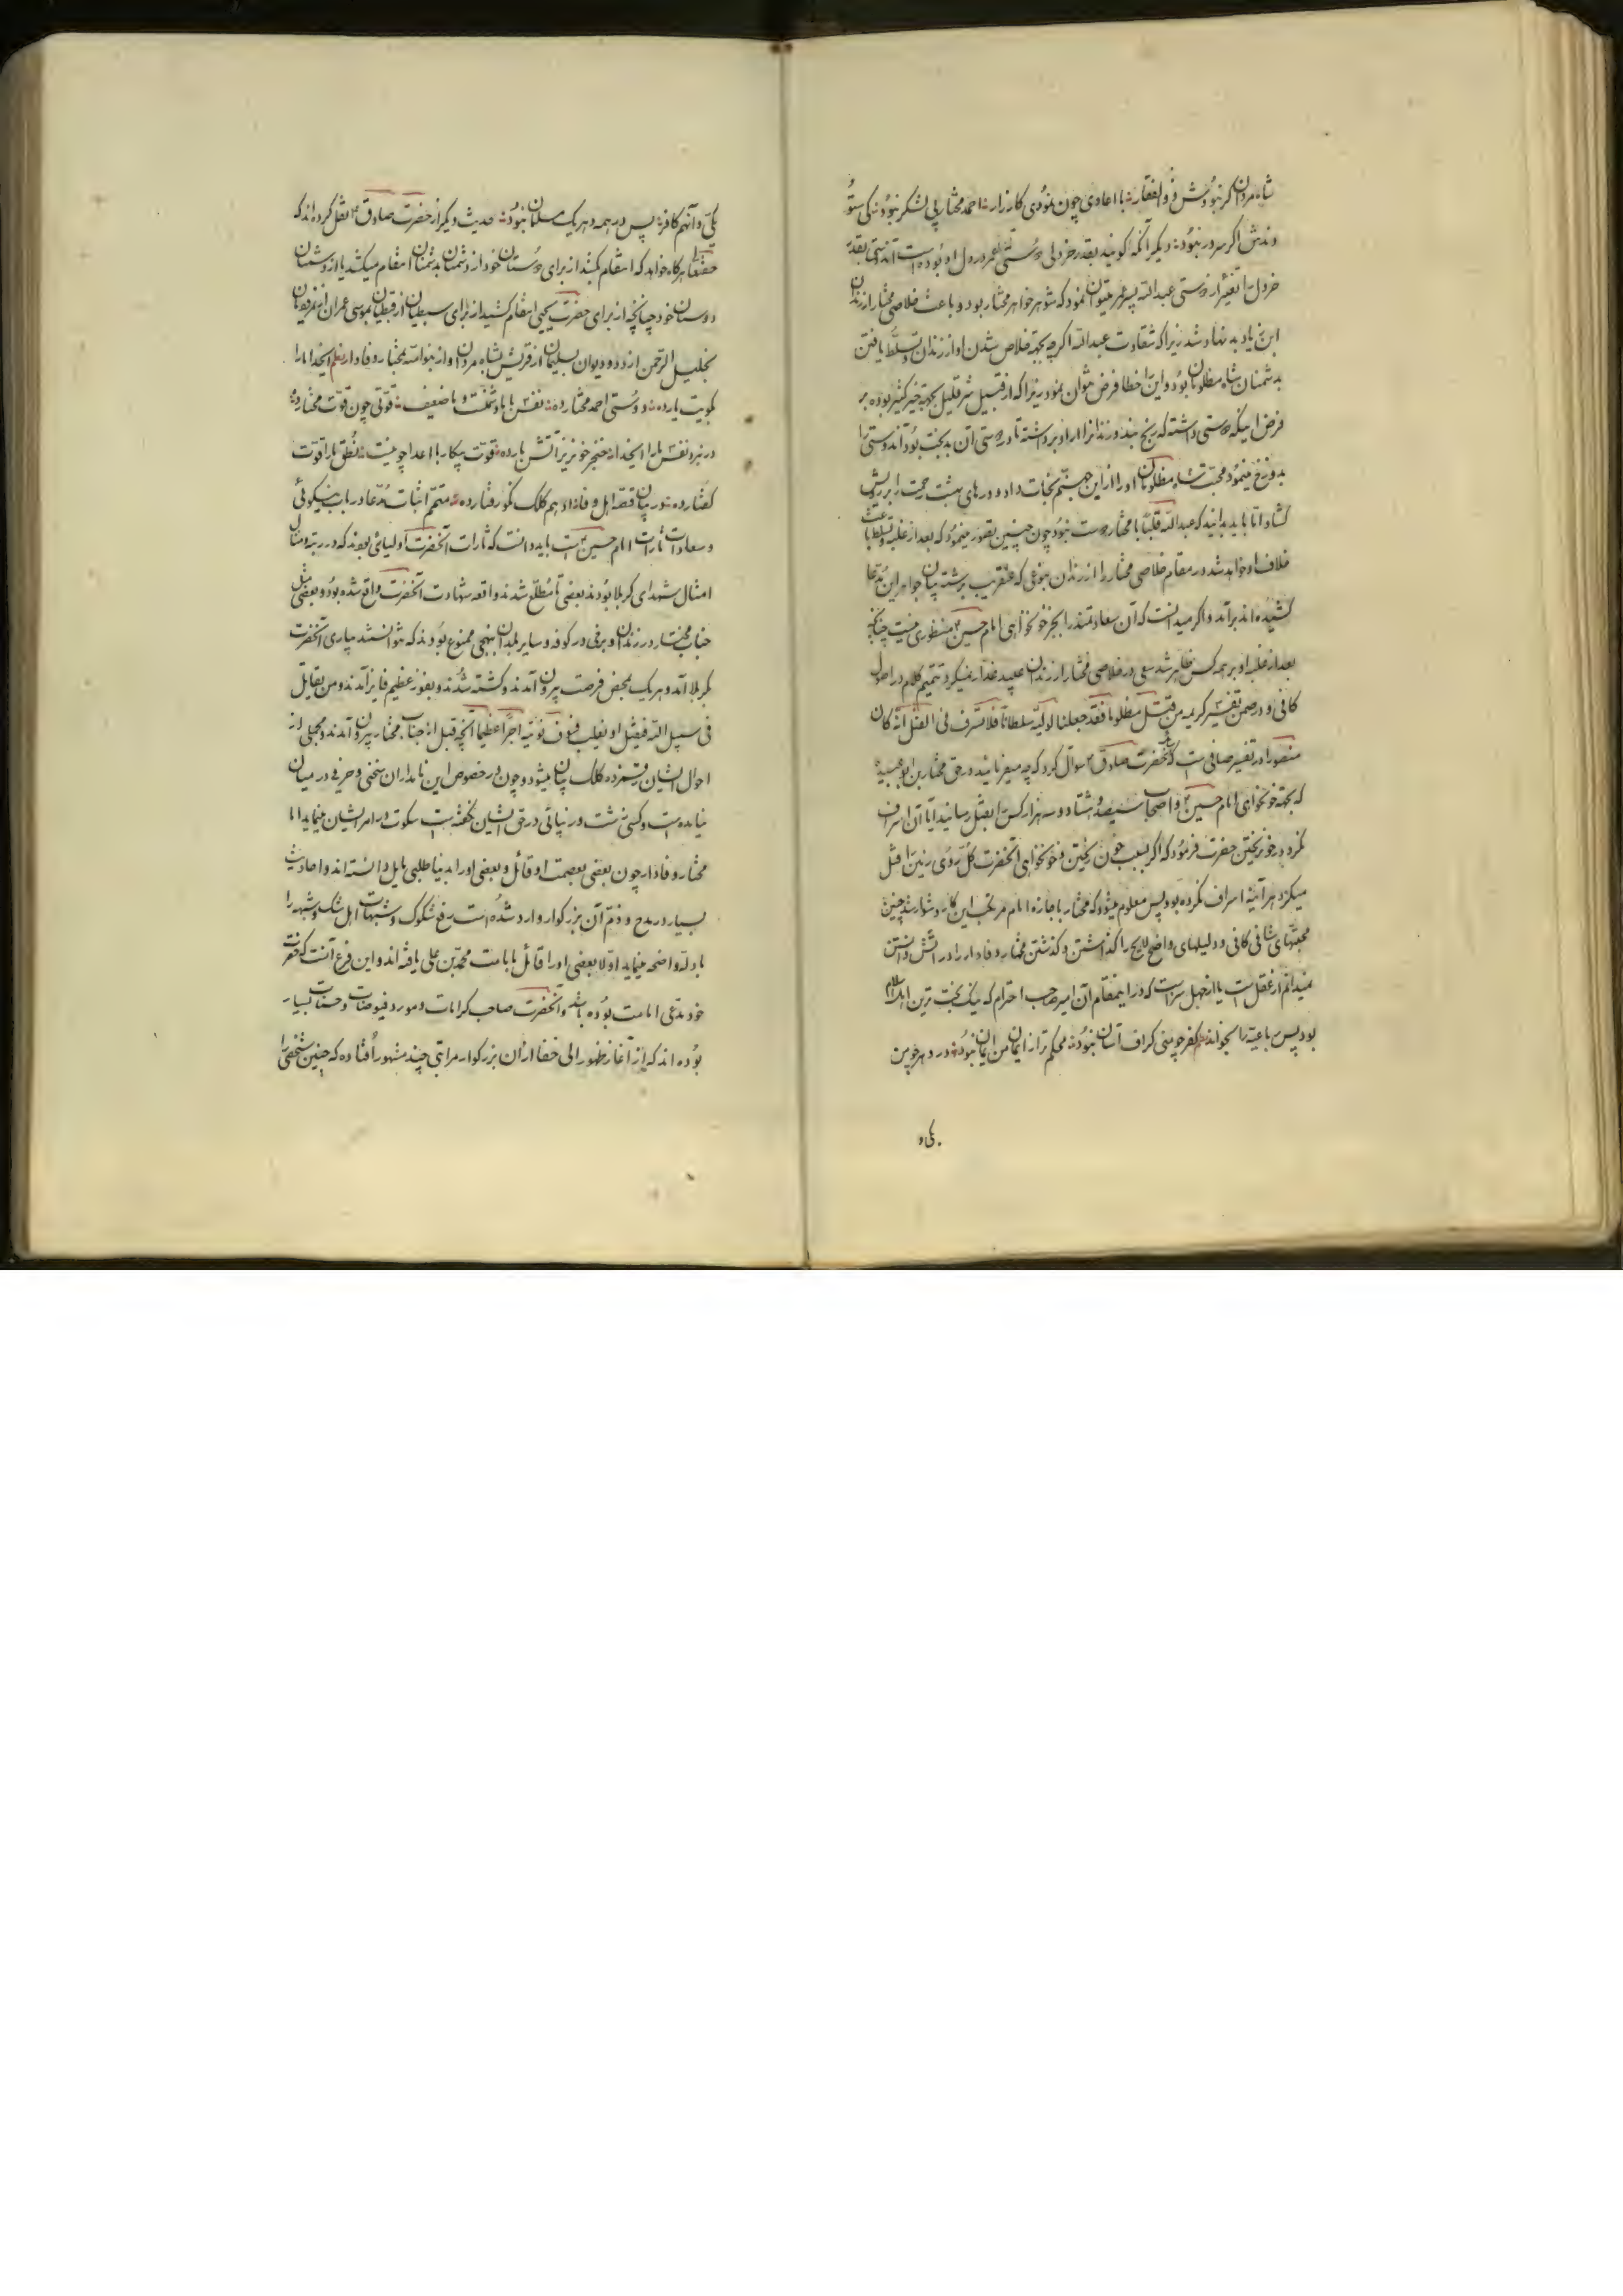 شاه مردان گر نبودش ذوالفقار با اعادی چون نمودی کارزار احمد مختار بی لشکر نبود کی ستو
دندش اگر سرور نبود دیگر آنکه گویند بقدر خردلی دوستی عمر در دل او بوده است آندوستی بقدر
خردل را تعبیر از دوستی عبدالله پسر عمر میتوان نمود که شوهر خواهر مختار بود و باعث خلاصی مختار از زندان
ابن زیاد بد نهاد شد زیرا که شقاوت عبدالله اگرچه بجهة خلاص شدن او از زندان و تسلط یافتن
بدشمنان شاه مظلومان بود و این را خطا فرض میتوان نمود زیرا که از قبیل شر قلیل بجهة خیر کثیر بوده بر
فرض اینکه دوستی داشته که رنج بند و زندانرا از او برداشته تا دوستی آن بدبخت بود آندوستی را
بدوزخ مینمود محبت شاه مظلومان او را از این جهنم نجات داد و درهای بهشت رحمت را بر رویش
گشاد اما باید بدانید که عبدالله قلباً با مختار دوست نبود چون چنین تصور مینمود که بعد از غلبه و تسلط باعث
خلاف او خواهد شد در مقام خلاصی مختار را از زندان بنوعی که عنقریب برشته بیان جواهر این مدعا
کشیده اند برآمد و اگر میدانست که آن سعادتمند را بجز خونخواهی امام حسین منظوری نیست چنانچه
بعد از غلبه او بر همه کس ظاهر شد سعی در خلاصی مختار از زندان عبید غدار نمیکرد تتمیم کلام در اصول
کافی و در ضمن تفسیر کریمه من قتل مظلوما فقد جعلنا لولیه سلطانا فلا تسرف فی القتل انه کان
منصورا در تفسیر صافی است که از حضرت صادق سوال کرد که چه میفرمائید در حق مختار بن ابو عبیده
که بجهة خونخواهی امام حسین و اصحاب سیصد و هشتاد و سه هزار کس را بقتل رسانید آیا آن اسراف
نکرد در خون ریختن حضرت فرمود که اگر بسبب خون ریختن و خونخواهی آنحضرت کل روی زمین را قتل
میکرد هر آینه اسراف نکرده بود پس معلوم میشود که مختار باجازه امام مرتکب این کار دشوار شد چنین
محبتهای شافی کافی و دلیلهای واضح لایح را گذاشتن و گذشتن مختار وفادار را در آتش دانستن
نمیدانم از عقل است یا از جهل سزاست که در اینمقام آن امیر صاحب احترام که نیک بخت ترین اهل اسلام
بود پس رباعیه را بخواند نظم کفر چو منی گزاف آسان نبود محکم تر از ایمان من ایمان نبود در دهر چو من
یکی و
یکی و آنهم کافر پس در همه دهر یک مسلمان نبود حدیث دیگر از حضرت صادق نقل کرده اند که
حقتعالی هرگاه خواهد که انتقام بکشد از برای دوستان خود از دشمنان بدشمنان انتقام میکشد یا از دشمنان
دوستان خود چنانچه از برای حضرت یحیی انتقام کشید از برای سبطیان از قبطیان بموسی عمران از نمرودیان
بخلیل الرحمن از دد و دیوان بسلیمان از قریش بشاه مردان و از بنو امیه بمختار وفادار نظم ایخدا ما را
بکویت یار ده دوستی احمد مختار ده نفس ما با ما و سخت و ما ضعیف قوتی چون قوت مختار ده
در نبرد نفس ما را ایخدا خنجر خونریز آتش بار ده قوت پیکار با اعدا چو نیست نطق ما را قوت
گفتار ده در بیان قصه اهل وفا زادهم کلک نکو رفتار ده متمم اثبات مدعا در باب نیکوئی
و سعادات ثارات امام حسین است باید دانست که ثارات آنحضرت اولیائی بودند که در رتبه و مثال
امثال شهدای کربلا بودند بعضی تا مطلع شدند واقعه شهادت آنحضرت واقع شده بود و بعضی مثل
جناب مختار در زندان و برخی در کوفه و سایر بلدان بنهجی ممنوع بودند که نتوانستند بیاری آنحضرت
بکربلا آمد و هر یک بمحض فرصت بیرون آمدند و کشته شدند و بفوز عظیم فایز آمدند و من یقاتل
فی سبیل الله فیقتل او یغلب فسوف نؤتیه اجرا عظیما آنچه قبل از جناب مختار بیرون آمدند و مجملی از
احوال ایشان رقمزده کلک بیان میشود و چون در خصوص این نامداران سخنی و حرفی در میان
نیامده است و کسی زشت و زیبائی در حق ایشان نگفته است سکوت در امر ایشان مینماید اما
مختار وفادار چون بعضی بعصمت او قائل و بعضی او را بدنیا طلبی مایل دانسته اند و احادیث
بسیار در مدح و ذم آن بزرگوار وارد شده است رفع شکوک و شبهات اهل شک و شبهه را
بادله واضحه مینماید اولا بعضی او را قائل بامامت محمد بن علی یافته اند و این فرع آنست که حضرت
خود مدعی امامت بوده باشد و آنحضرت صاحب کرامات و مورد فیوضات و حسنات بسیار
بوده اند که از آغاز ظهور الی خفا از آن بزرگوار مراتبی چند مشهور افتاده که چنین شخصی را